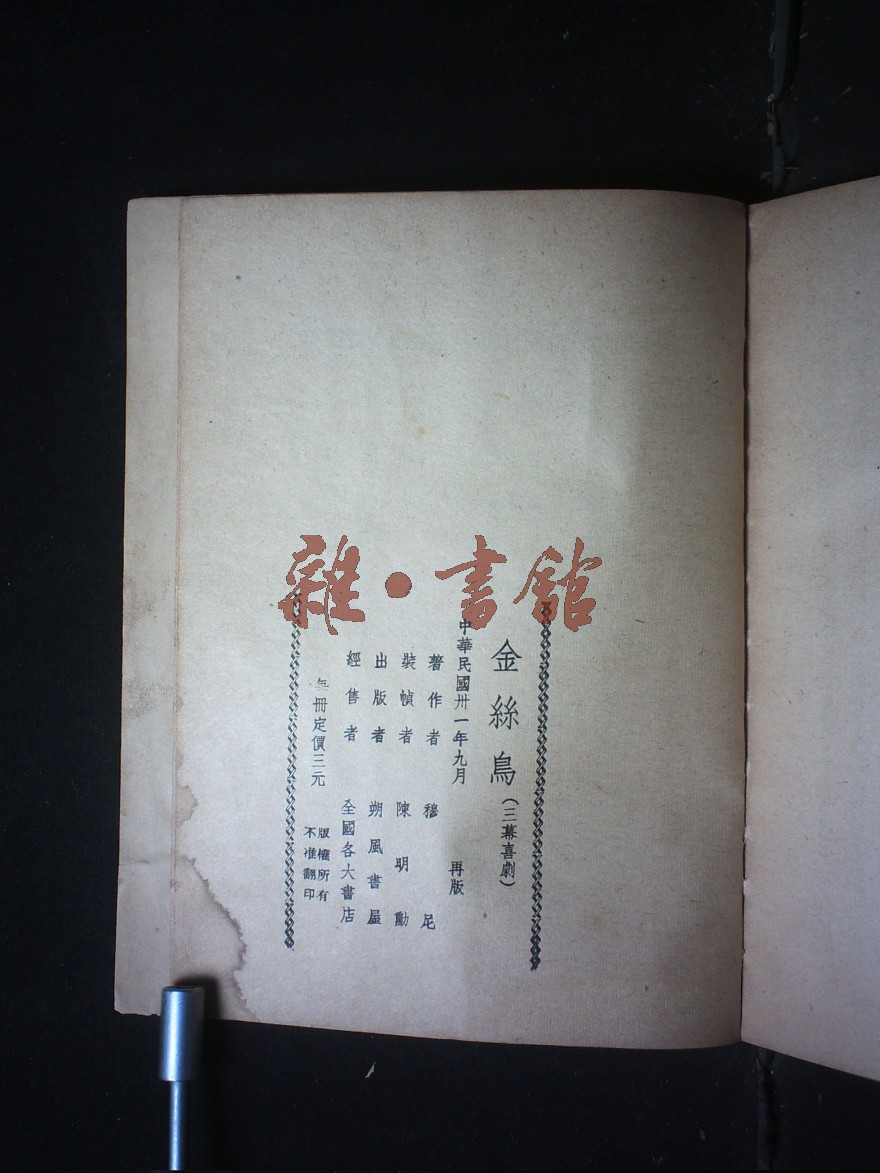 雜·書館
金絲鳥(三幕喜劇)
中華民國卅一年九月 再版
著作者 穆尼
裝幀者 陳明勳
出版者 朔風書屋
經售者 全國各大書店
每冊定價三元
版權所有
不准翻印